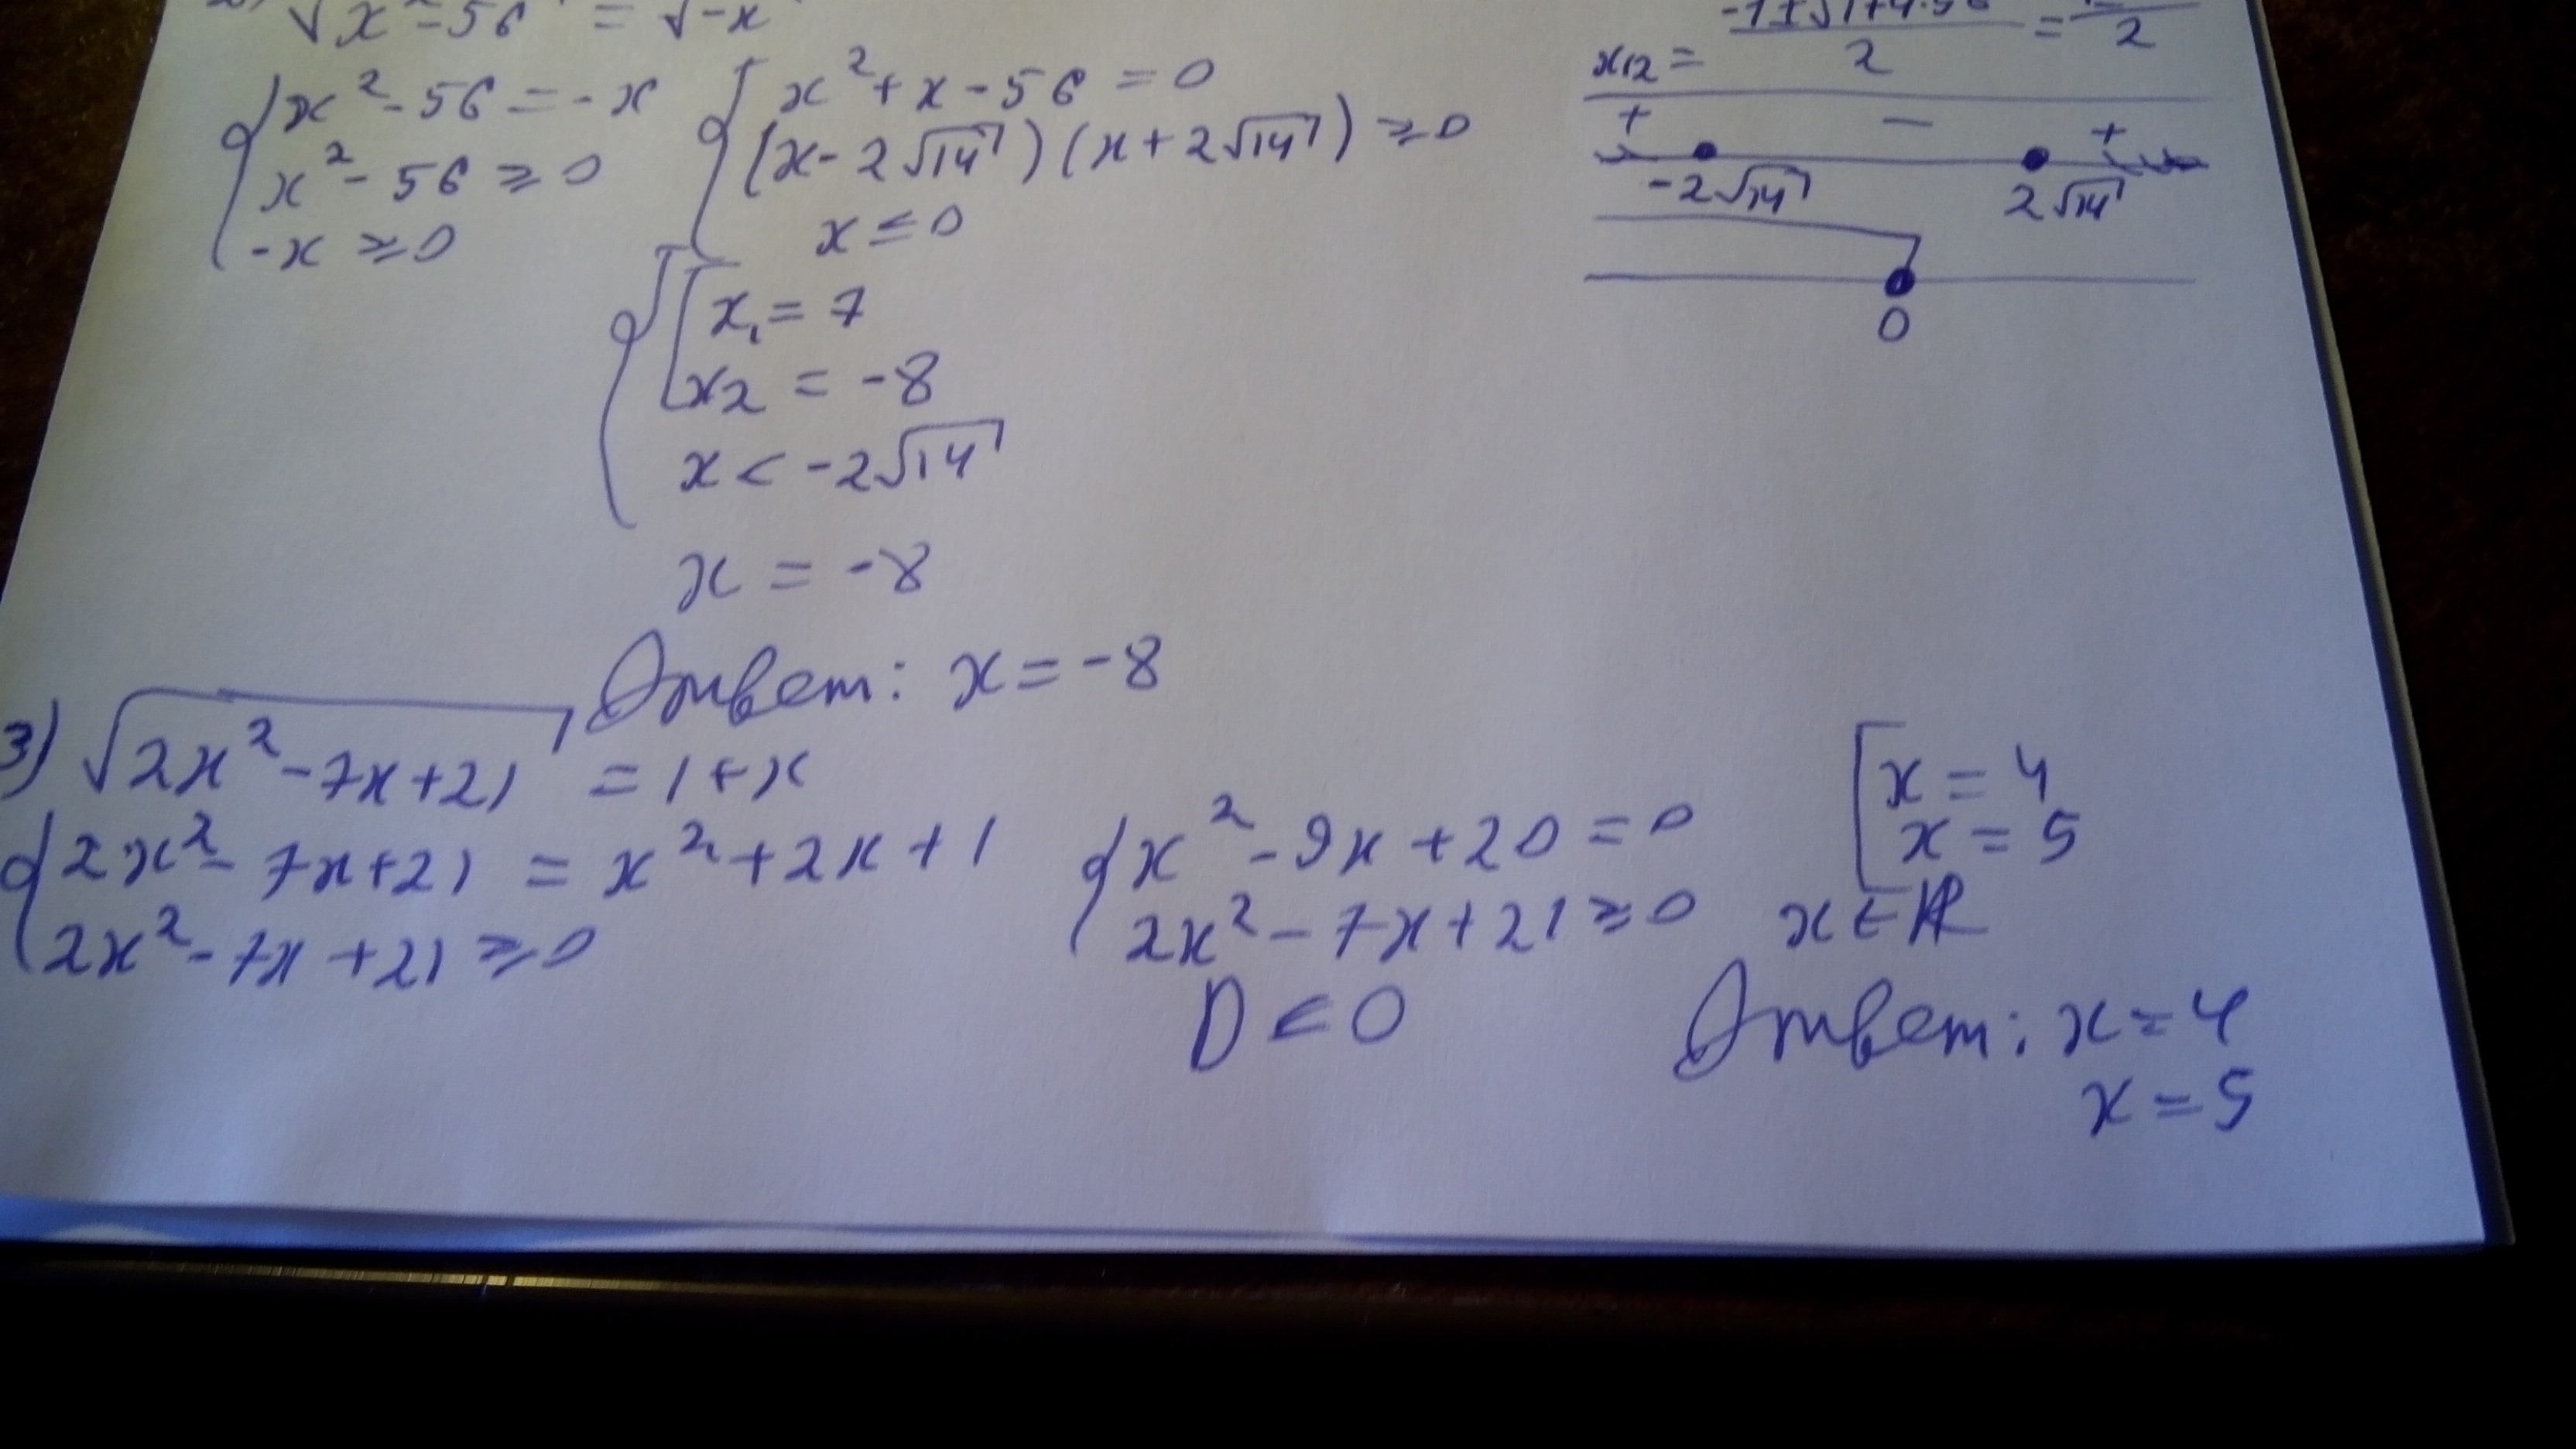 √x²-56 = √-x
x₁₂ = (-1±√1+4·56)/2 = /2
{x²-56=-x {x²+x-56=0
x²-56≥0 (x-2√14)(x+2√14)≥0
-x≥0 x≤0
+ - +
-2√14 2√14
0
{[x₁=7
x₂=-8
x<-2√14
x=-8
Ответ: x=-8
3) √2x²-7x+21 = 1+x
{2x²-7x+21=x²+2x+1 {x²-9x+20=0 [x=4
x=5
2x²-7x+21≥0 2x²-7x+21≥0 x∈R
D<0
Ответ: x=4
x=5